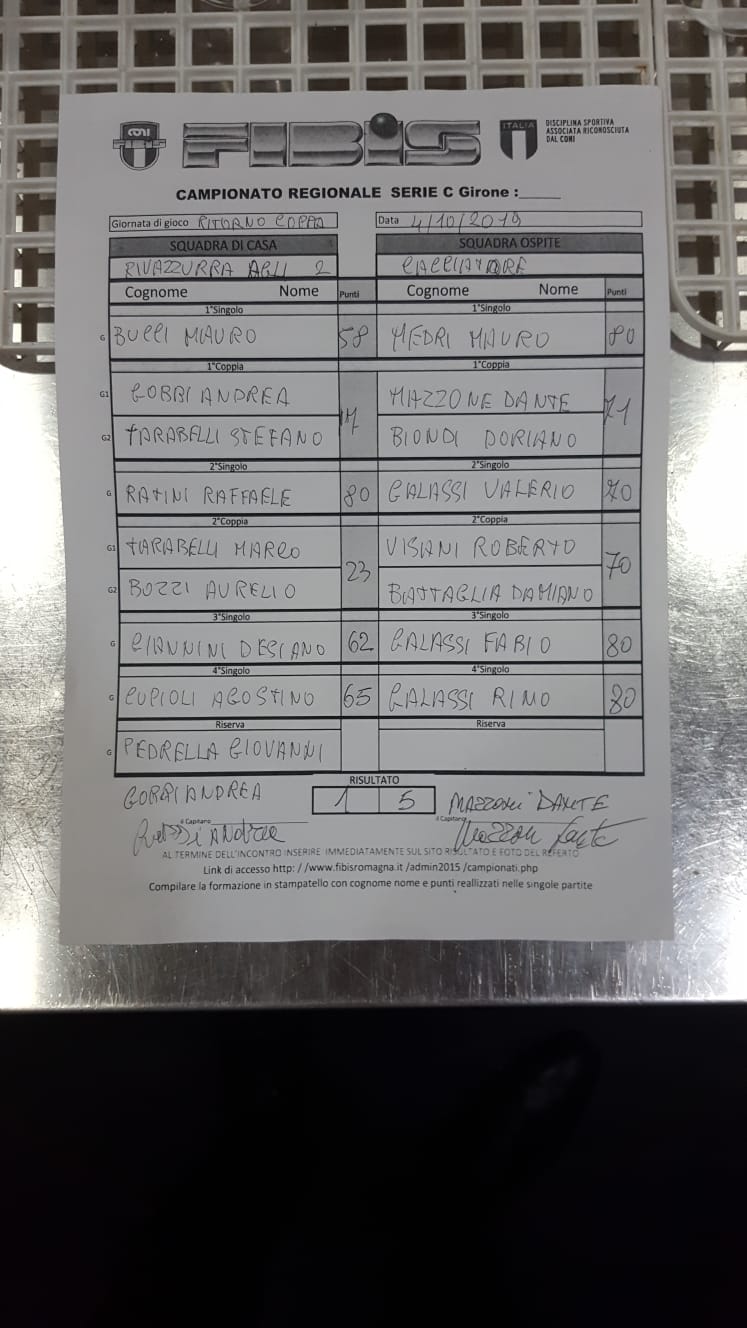 CONI
FIBIS
ITALIA
DISCIPLINA SPORTIVA
ASSOCIATA RICONOSCIUTA
DAL CONI
CAMPIONATO REGIONALE SERIE C Girone :_____
Giornata di gioco RITORNO COPPA Data 4/10/2019
SQUADRA DI CASA SQUADRA OSPITE
RIVAZZURRA AGLI 2 CACCIATORE
Cognome Nome Punti Cognome Nome Punti
1°Singolo 1°Singolo
G BUCCI MAURO 58 MEDRI MAURO 80
1°Coppia 1°Coppia
G1 GOBBI ANDREA MAZZONE DANTE 71
G2 TARABELLI STEFANO BIONDI DORIANO
2°Singolo 2°Singolo
G RATINI RAFFAELE 80 GALASSI VALERIO 70
2°Coppia 2°Coppia
G1 TARABELLI MARCO 23 VISANI ROBERTO 70
G2 BOZZI AURELIO BATTAGLIA DAMIANO
3°Singolo 3°Singolo
G GIANNINI DECIANO 62 GALASSI FABIO 80
4°Singolo 4°Singolo
G CUPIOLI AGOSTINO 65 GALASSI RIMO 80
Riserva Riserva
G PEDRELLA GIOVANNI
RISULTATO
GOBBI ANDREA 1 5 MAZZONI DANTE
il Capitano il Capitano
AL TERMINE DELL'INCONTRO INSERIRE IMMEDIATAMENTE SUL SITO RISULTATO E FOTO DEL REFERTO
Link di accesso http: / /www.fibisromagna.it /admin2015 /campionati.php
Compilare la formazione in stampatello con cognome nome e punti reallizzati nelle singole partite